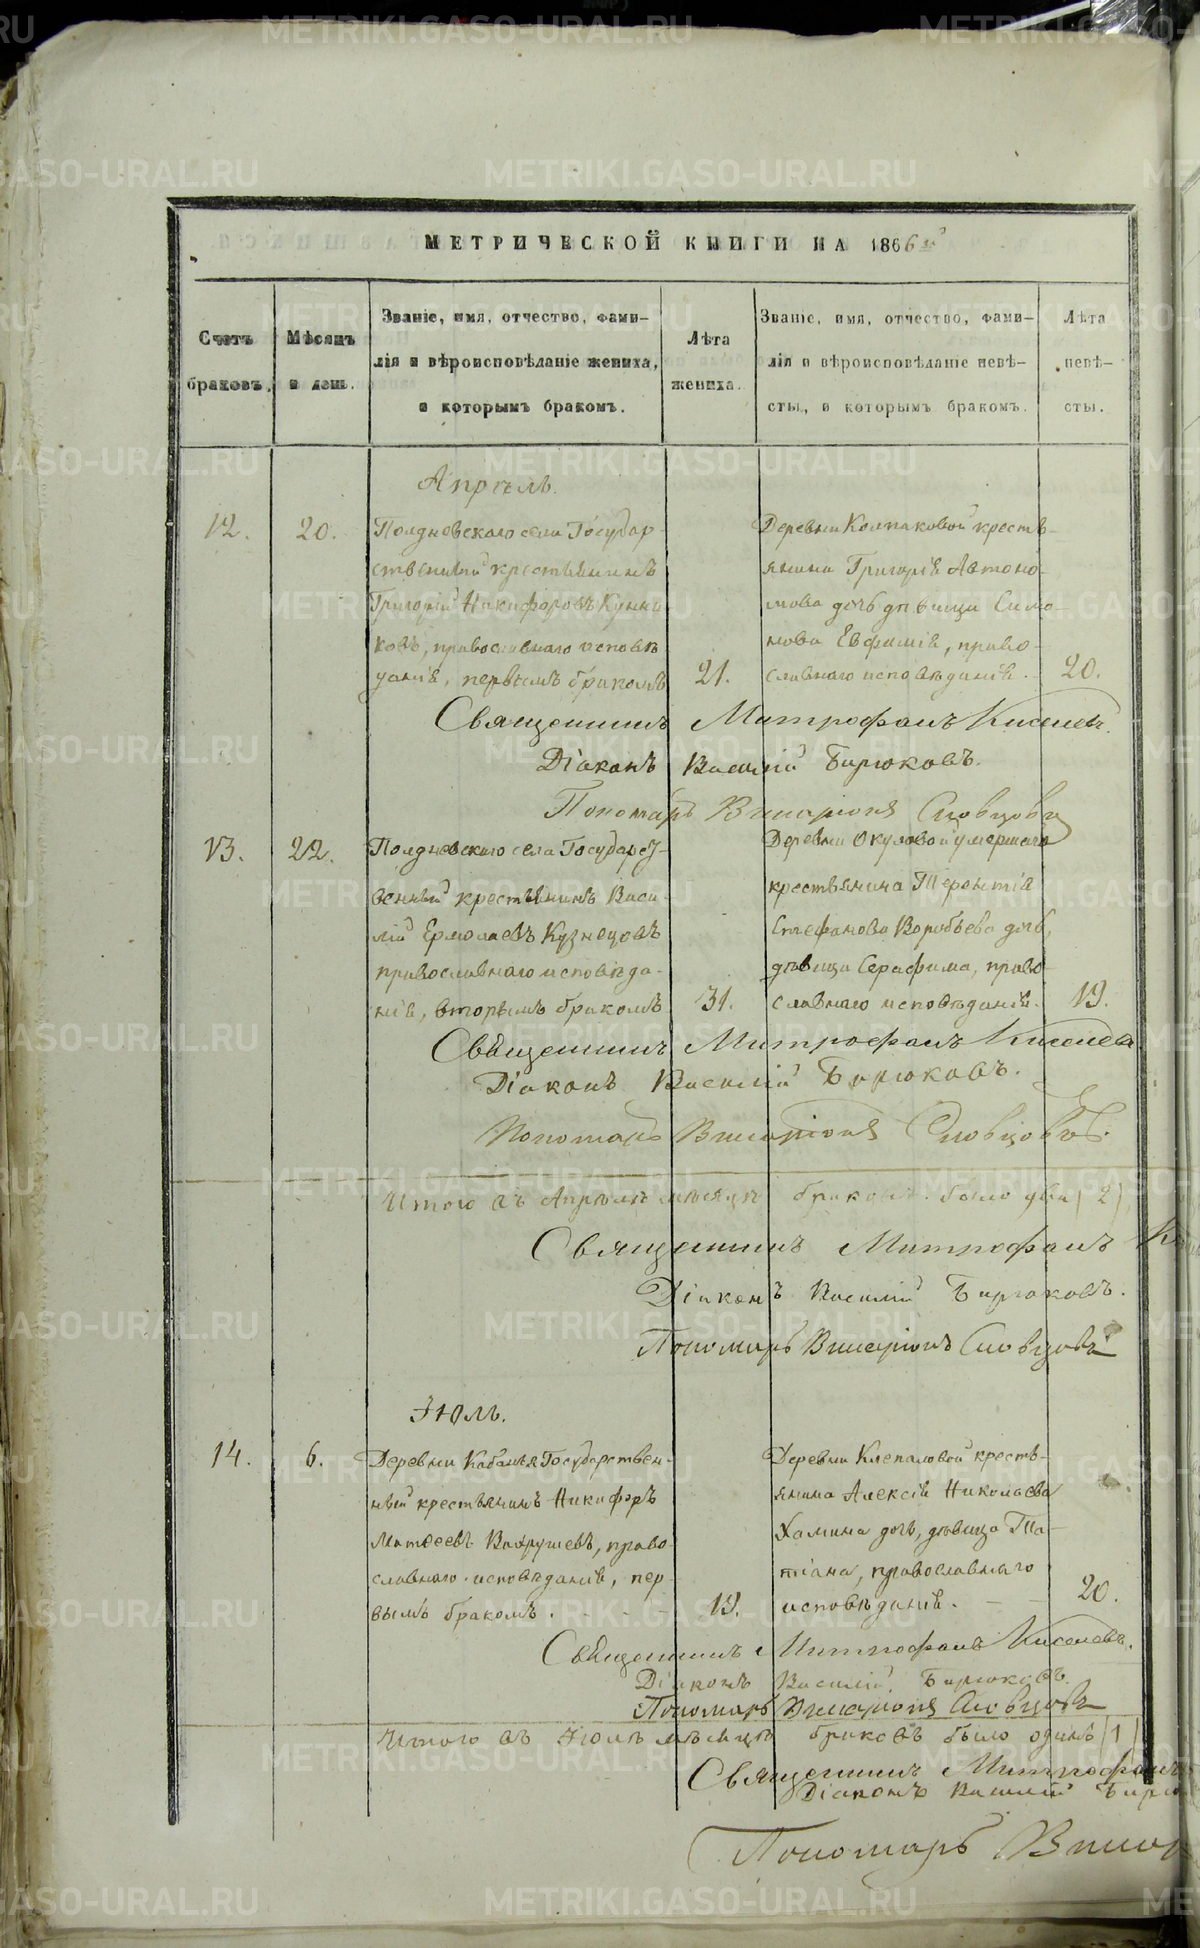 МЕТРИЧЕСКОЙ КНИГИ НА 1866й
Счетъ браковъ.
Мѣсяцъ и день.
Званіе, имя, отчество, фами-
лія и вѣроисповѣданіе жениха,
и которымъ бракомъ.
Лѣта
жениха.
Званіе, имя, отчество, фами-
лія и вѣроисповѣданіе невѣ-
сты, и которымъ бракомъ.
Лѣта
невѣ-
сты.
Апрѣль.
12.
20.
Полдневскаго села Государ-
ственный крестьянинъ
Григорій Никифоровъ
православнаго исповѣ
данія, первымъ бракомъ
21.
Деревни Колпаковой кресть-
янина Григорія Автоно-
мова дочь дѣвица Симо-
нова Евфимія, право-
славнаго исповѣданія.
20.
Священникъ Митрофанъ Киселевъ.
Діаконъ Василій Бирюковъ.
Пономарь Виссаріонъ Словцовъ
13.
22.
Полдневскаго села Государст-
венный крестьянинъ Васи-
лій Ермолаевъ Кузнецовъ
православнаго исповѣда-
нія, вторымъ бракомъ
31.
Деревни Окуловой умершаго
крестьянина Терентія
Стефанова Воробьева дочь,
дѣвица Серафима, право-
славнаго исповѣданія.
19.
Священникъ Митрофанъ Киселевъ
Діаконъ Василій Бирюковъ.
Пономарь Виссаріонъ Словцовъ.
Итого въ Апрѣлѣ мѣсяцѣ браковъ было два (2)
Священникъ Митрофанъ
Діаконъ Василій Бирюковъ.
Пономарь Виссаріонъ Словцовъ
Іюль.
14.
6.
Деревни Кабанья Государствен-
ный крестьянинъ Никифоръ
Матѳеевъ Вахрушевъ, право-
славнаго исповѣданія, пер-
вымъ бракомъ.
19.
Деревни Клепаловой кресть-
янина Алексія Николаева
Хамина дочь, дѣвица Та-
тіана, православнаго
исповѣданія.
20.
Священникъ Митрофанъ Киселевъ.
Діаконъ Василій Бирюковъ.
Пономарь Виссаріонъ Словцовъ
Итого въ Іюлѣ мѣсяцѣ браковъ было одинъ (1)
Священникъ Митрофанъ
Діаконъ Василій Бирю
Пономарь Виссар
METRIKI.GASO-URAL.RU